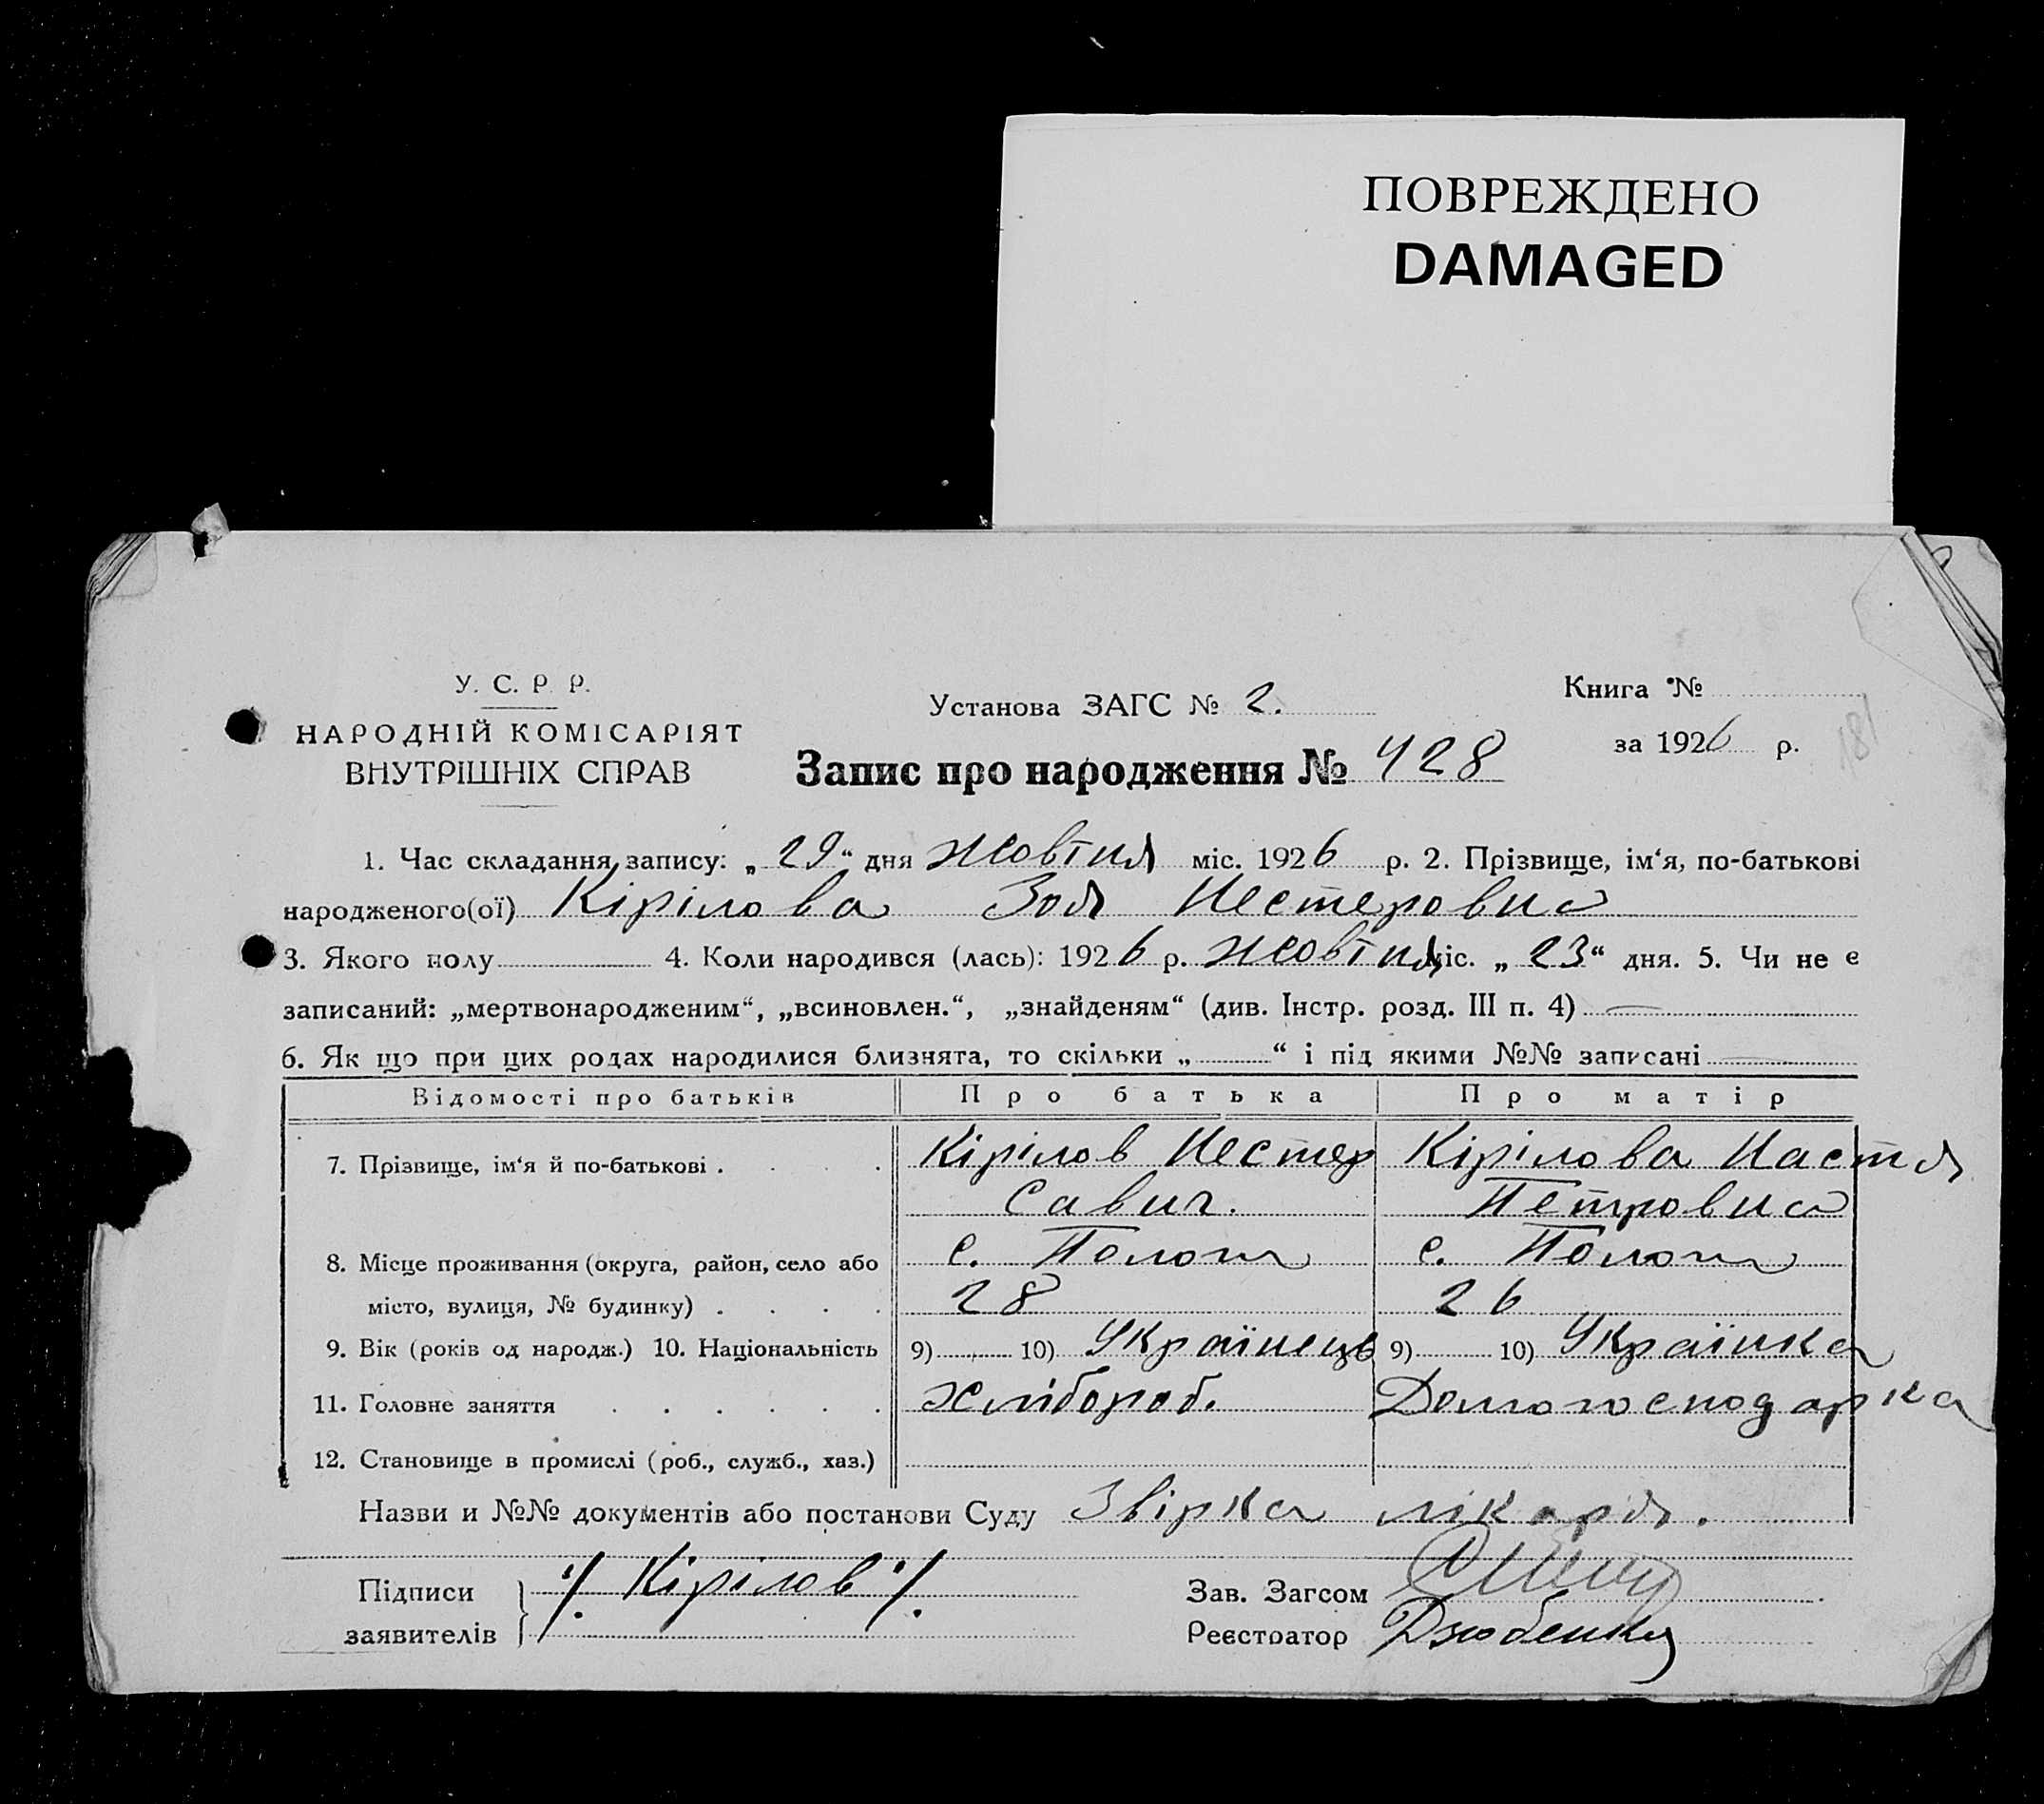 ПОВРЕЖДЕНО
DAMAGED
У. С. Р. Р.
НАРОДНІЙ КОМІСАРІЯТ
ВНУТРІШНІХ СПРАВ
Установа ЗАГС № 2.
Запис про народження № 428
Книга №
за 1926 р.
181
1. Час складання запису: „29“ дня жовтня міс. 1926 р. 2. Прізвище, ім‘я, по-батькові
народженого(ої) Кірілова Зоя Нестеровна
3. Якого полу 4. Коли народився (лась): 1926 р. жовтня міс. „23“ дня. 5. Чи не є
записаний: „мертвонародженим“, „всиновлен.“, „знайденям“ (див. Інстр. розд. III п. 4) —
6. Як що при цих родах народилися близнята, то скільки „ “ і під якими №№ записані —
Відомості про батьків Про батька Про матір
7. Прізвище, ім‘я й по-батькові . . . . Кірілов Нестер Кірілова Настя
Савич. Петровна
8. Місце проживання (округа, район, село або с. Пологи с. Пологи
місто, вулиця, № будинку) . . . . 28 26
9. Вік (років од народж.) 10. Національність 9) 10) Українець 9) 10) Українка
11. Головне заняття . . . . . . Хлібороб. Домогосподарка
12. Становище в промислі (роб., служб., хаз.)
Назви и №№ документів або постанови Суду Звірка лікаря.
Підписи /Кірілов/ Зав. Загсом
заявителів Реєстратор Дзюбенко